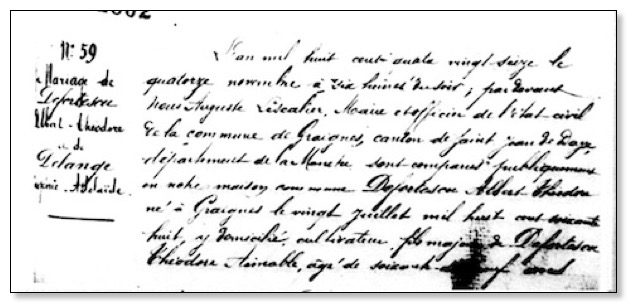 N° 59
Mariage de
Defortescu
Albert-Théodore
& de
Delange
Eugénie-Adélaïde.
L'an mil huit cent quatre vingt-seize le
quatorze novembre à six heures du soir, par devant
Nous Auguste Lescalier, Maire et officier de l'état civil
de la commune de Graignes, canton de Saint Jean de Daye,
département de la Manche sont comparus publiquement
en notre maison commune Defortescu Albert Théodore
né à Graignes le vingt juillet mil huit cent soixante
huit, y domicilié, cultivateur, fils majeur de Defortescu
Théodore Aimable, âgé de soixante- neuf ans